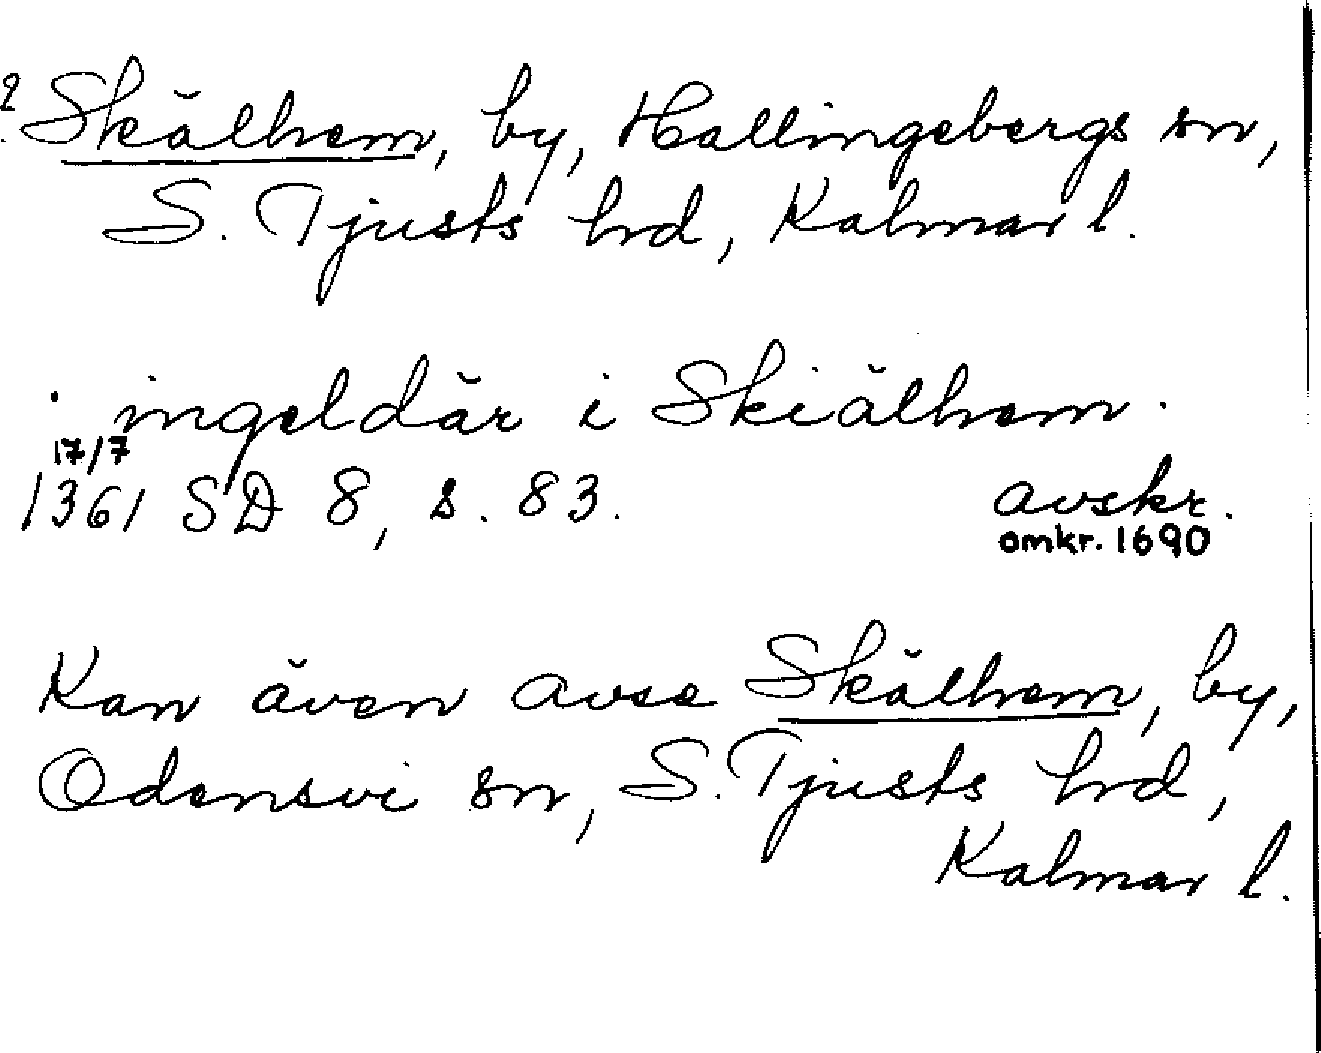 ? Skälhem, by, Hallingebergs sn,
S. Tjusts hd, Kalmar l.
· ingeldär i Skiälhem.
17/7
1361 SD 8, s. 83. avskr.
omkr. 1690
Kan även avse Skälhem, by,
Odensvi sn, S. Tjusts hd,
Kalmar l.